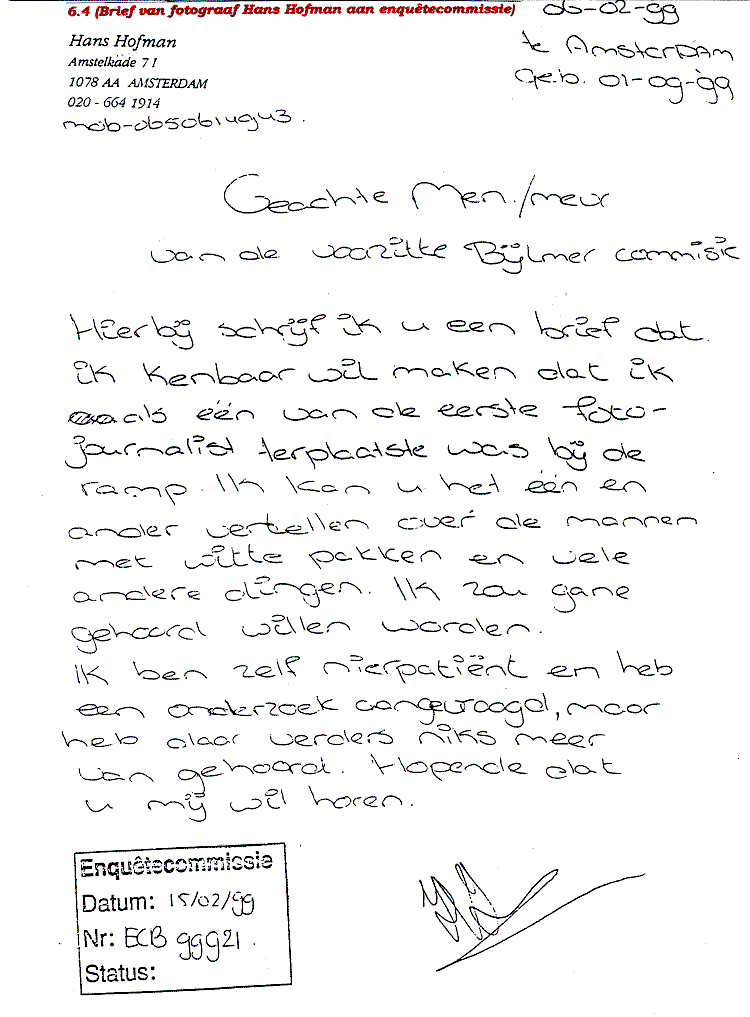 6.4 (Brief van fotograaf Hans Hofman aan enquêtecommissie)
06-02-99
Hans Hofman
te Amsterdam
Amstelkade 71
Geb. 01-09-99
1078 AA AMSTERDAM
020 - 664 1914
mob-0650614943.
Geachte Men./meur
van de voorzitte Bijlmer commisie
Hierbij schrijf ik u een brief dat
ik kenbaar wil maken dat ik
als één van de eerste foto-
journalist terplaatste was bij de
ramp. Ik kan u het één en
ander vertellen over de mannen
met witte pakken en vele
andere dingen. Ik zou gane
gehoord willen worden.
ik ben zelf nierpatiënt en heb
een onderzoek aangevraagd, maar
heb daar verders niks meer
van gehoord. Hopende dat
u mij wil horen.
Enquêtecommissie
Datum: 15/02/99
Nr: ECB 99921.
Status: